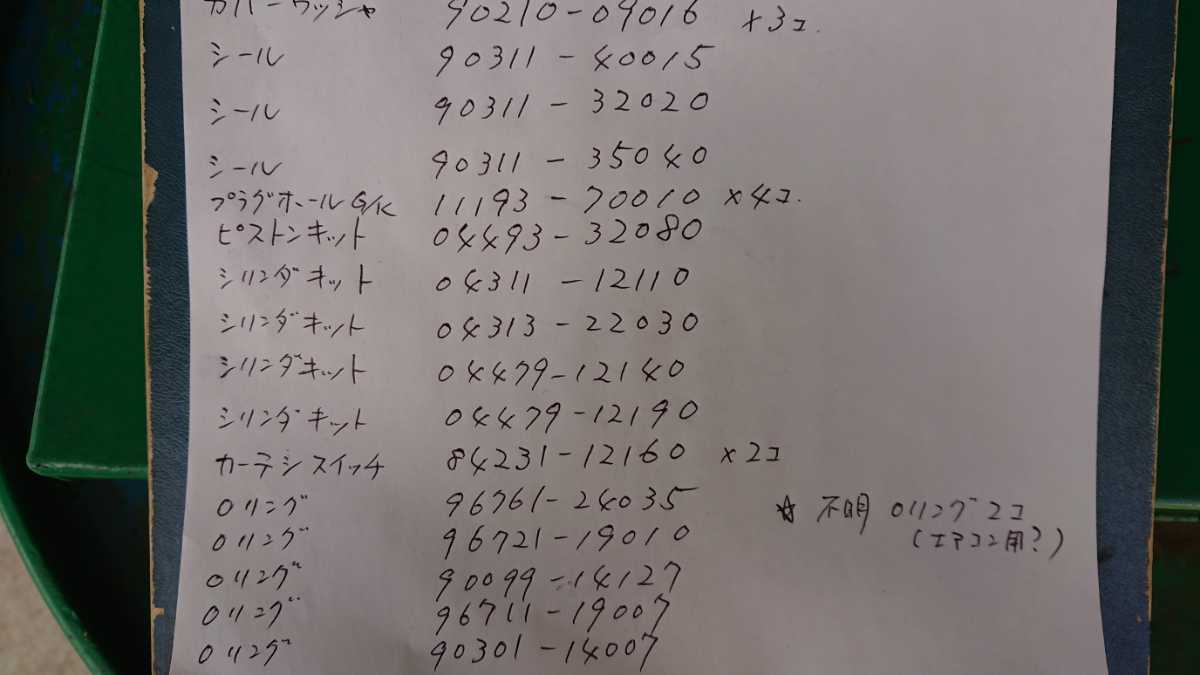 カバーワッシャ 90210-09016 ×3コ.
シール 90311-40015
シール 90311-32020
シール 90311-35040
プラグホールG/K 11193-70010 ×4コ.
ピストンキット 04493-32080
シリンダキット 04311-12110
シリンダキット 04313-22030
シリンダキット 04479-12140
シリンダキット 04479-12190
カーテシスイッチ 84231-12160 ×2コ
Oリング 96761-24035
☆ 不明 Oリング2コ
Oリング 96721-19010
(エアコン用?)
Oリング 90099-14127
Oリング 96711-19007
Oリング 90301-14007